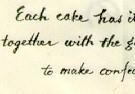 Each cake has it
together with the
to make confe